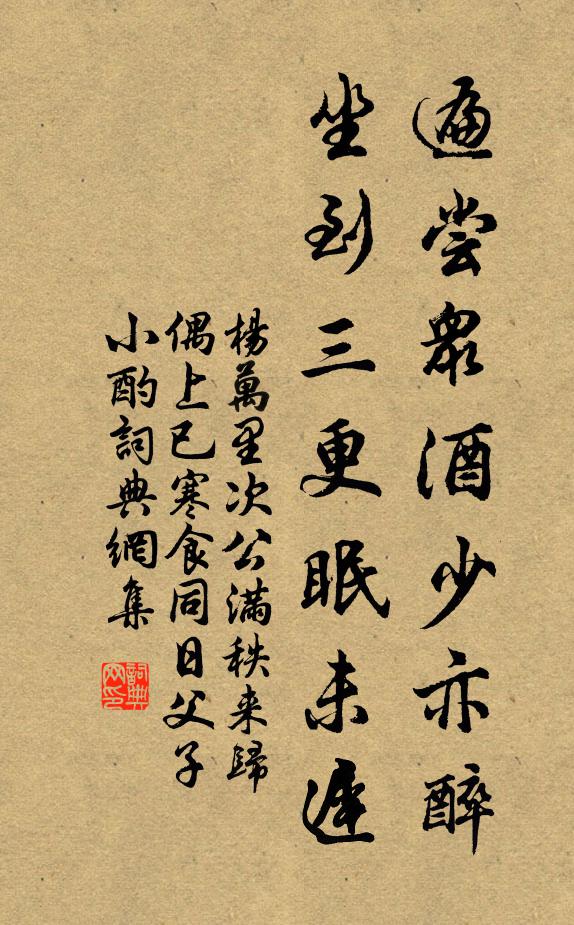 遍尝眾酒少亦醉
坐到三更眠未遲
楊萬里次公滿秩来歸
偶上已寒食同日父子
小酌詞典網集
詞典
网印